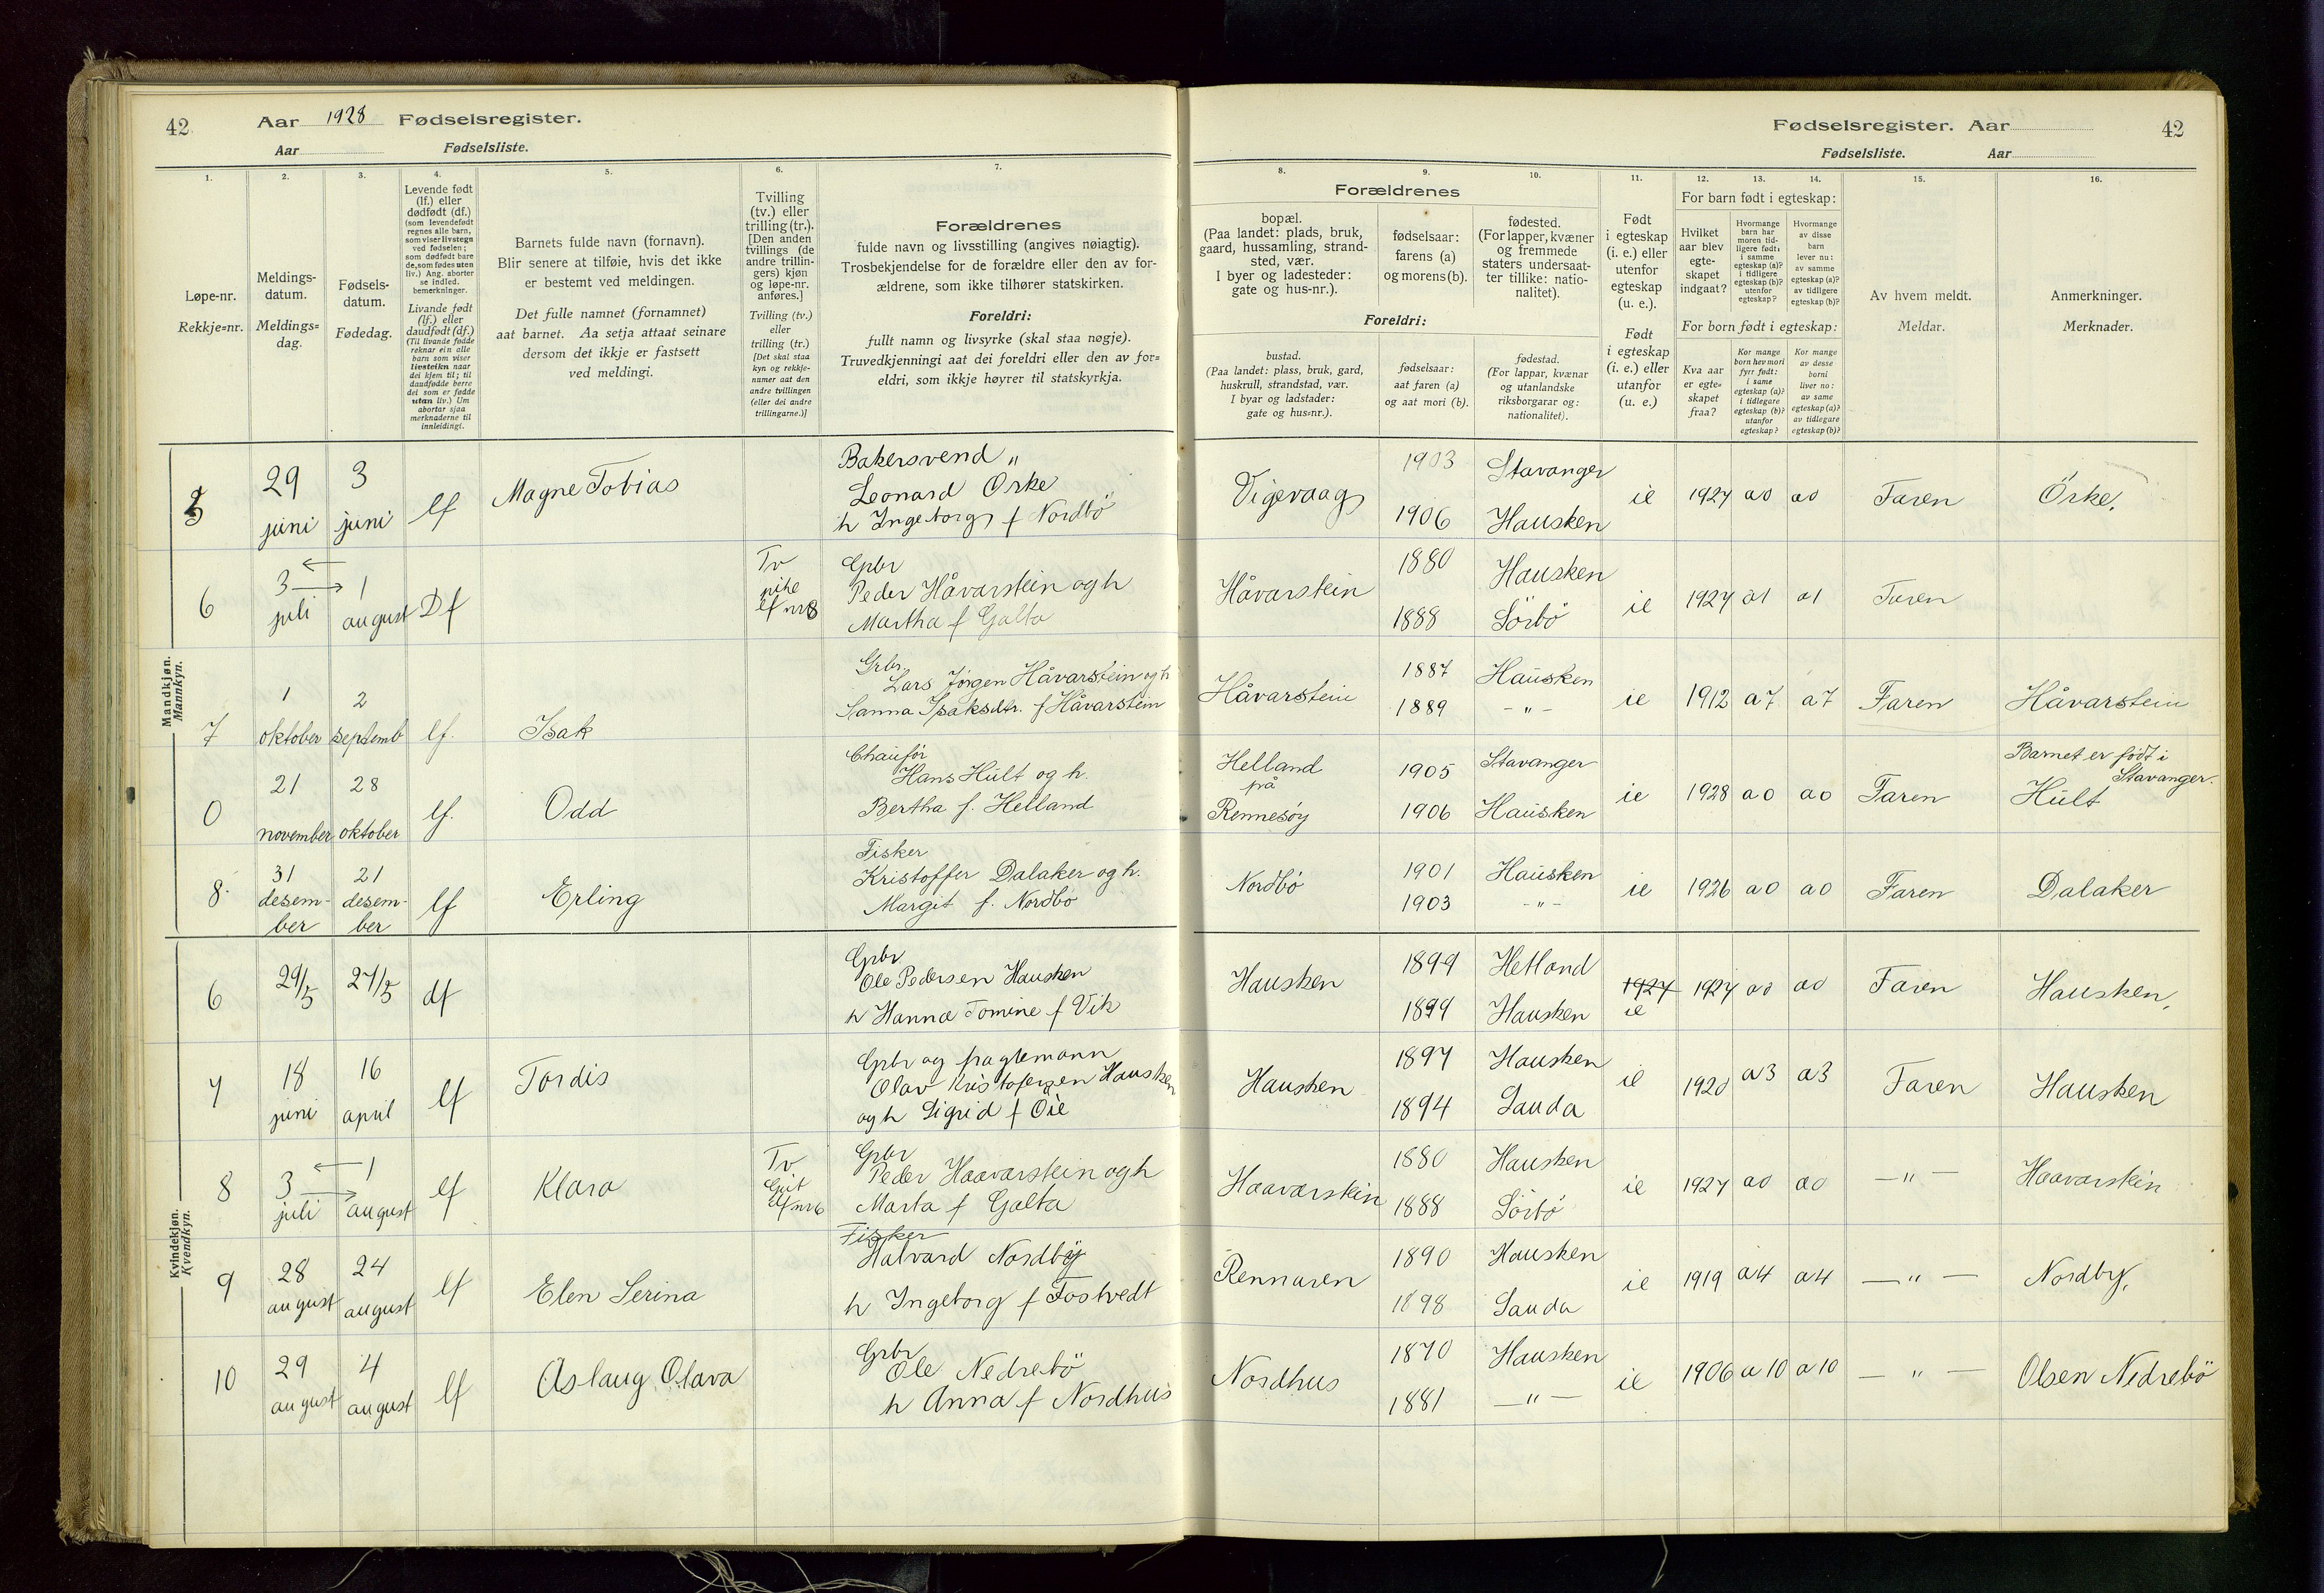 42 Aar 1928 Fødselsregister.
Aar Fødselsliste.
Fødselsregister. Aar 42
Fødselsliste. Aar
1.
Løpe-nr.
Rekkje=nr.
2.
Meldings-
datum.
Meldings=
dag.
3.
Fødsels-
datum.
Fødedag.
4.
Levende født
(lf.) eller
dødfødt (df.)
(som levendefødt
regnes alle barn,
som viser livstegn
ved fødselen;
som dødfødt bare
de, som fødes uten
liv.) Ang. aborter
se indled.
bemerkninger.
Livande født
(lf.) eller
daudfødt (df.)
(Til livande fødde
reknar ein alle
barn som viser
livsteikn naar
dei kjem til; til
daudfødde berre
dei som er fødde
utan liv.) Um
abortar sjaa
merknaderne til
innleidingi.
5.
Barnets fulde navn (fornavn).
Blir senere at tilføie, hvis det ikke
er bestemt ved meldingen.
Det fulle namnet (fornamnet)
aat barnet. Aa setja attaat seinare
dersom det ikkje er fastsett
ved meldingi.
6.
Tvilling
(tv.) eller
trilling (tr.).
[Den anden
tvillings (de
andre trillin-
gers) kjøn
og løpe-nr.
anføres.]
Tvilling (tv.)
eller
trilling (tr.)
[Det skal staa
kyn og rekkje-
numer aat den
andre tvillingen
(eller dei andre
trillingarne.)]
7.
Forældrenes
fulde navn og livsstilling (angives nøiagtig).
Trosbekjendelse for de forældre eller den av for-
ældrene, som ikke tilhører statskirken.
Foreldri:
fullt namn og livsyrke (skal staa nøgje).
Truvedkjenningi aat dei foreldri eller den av for=
eldri, som ikkje høyrer til statskyrkja.
Forældrenes
8.
bopæl.
(Paa landet: plads, bruk,
gaard, hussamling, strand-
sted, vær.
I byer og ladesteder:
gate og hus-nr.).
9.
fødselsaar:
farens (a)
og morens (b).
10.
fødested.
(For lapper, kvæner
og fremmede
staters undersaat-
ter tillike: natio-
nalitet).
Foreldri:
bustad.
(Paa landet: plass, bruk, gard,
huskrull, strandstad, vær.
I byar og ladstader:
gate og hus=nr.).
fødselsaar:
aat faren (a)
og aat mori (b).
fødestad.
(For lappar, kvænar
og utanlandske
riksborgarar og:
nationalitet).
11.
Født
i egteskap
(i. e.) eller
utenfor
egteskap
(u. e.).
Født
i egteskap
(i. e.) eller
utanfor
(u. e.)
12. 13. 14.
For barn født i egteskap:
Hvilket
aar blev
egte-
skapet
indgaat?
Hvormange
barn har
moren tid-
ligere født:
i samme
egteskap (a)?
i tidligere
egteskap (b)?
utenfor
egteskap?
Hvormange
av disse
barn
lever nu:
av samme
egteskap (a)?
av tidligere
egteskap (b)?
For born født i egteskap:
Kva aar
er egte=
skapet
fraa?
Kor mange
born hev mori
fyrr født:
i same
egteskap (a)?
i tidlegare
egteskap (b)?
utanfor
egteskap?
Kor mange
av desse
borni
liver no:
av same
egteskap (a)?
av tidlegare
egteskap (b)?
15.
Av hvem meldt.
Meldar.
16.
Anmerkninger.
Merknader.
Mandkjøn.
Mannkyn.
5 29 juni 3 juni lf Magne Tobias
Bakersvend "
Leonard Orke
h Ingeborg f Nordbö
Vigevaag 1903 Stavanger
1906 Hausken
ie 1927 a0 a0 Faren Örke.
6 3 juli 1 august Df
Tv
pike
lf nr 8
Gpbr
Peder Håvarstein og h
Martha f Galta
Håvarstein 1880 Hausken
1888 Sörbö
ie 1927 a1 a1 Faren
7 1 oktober 2 septemb lf. Isak
Grbr.
Lars Jørgen Håvarstein og h
Sanna Isaksdtr. f Håvarstein
Håvarstein 1887 Hausken
1889 - " -
ie 1912 a7 a7 Faren Håvarstein
0 21 november 28 oktober lf. Odd
Chaufør
Hans Hult og h.
Bertha f. Helland
Helland
på
Rennesøy
1905 Stavanger
1906 Hausken
ie 1928 a0 a0 Faren
Barnet er født i
Stavanger.
Hult
8. 31 desem-
ber
21 desem-
ber
lf Erling
Fisker
Kristoffer Dalaker og h.
Margit f. Nordbø
Nordbö 1901 Hausken
1903 - " -
ie 1926 a0 a0 Faren Dalaker
Kvindekjøn.
Kvendkyn.
6 29/5 27/5 df
Gpbr
Ole Pedersen Hausken
h Hanna Tomine f Vik
Hausken 1899 Hetland
1899 Hausken
1927
ie 1927 a0 a0 Faren Hausken,
7 18 juni 16 april lf Tordis
Gpbr og fragtemann
Olav Kristofersen Hausken
og h Sigrid f Öie
Hausken 1897 Hausken
1894 Sauda
ie 1920 a3 a3 Faren Hausken
8 3 juli 1 august lf Klara
Tv
Gut
lf nr 6
Gpbr
Peder Haavarstein og h
Marta f Galta
Haavarstein 1880 Hausken
1888 Sörbö
ie 1927 a0 a0 - " - Haavarstein
9 28 august 24 august lf Elen Serina
Fisker
Halvard Nordby
h Ingeborg f Fostvedt
Rennaren 1890 Hausken
1898 Sauda
ie 1919 a4 a4 - " - Nordby,
10 29 august 4 august lf Aslaug Olava
Grbr
Ole Nedrebö
h Anna f Nordhus
Nordhus 1870 Hausken
1881 - " -
ie 1906 a 10 a 10 - " - Olsen Nedrebö